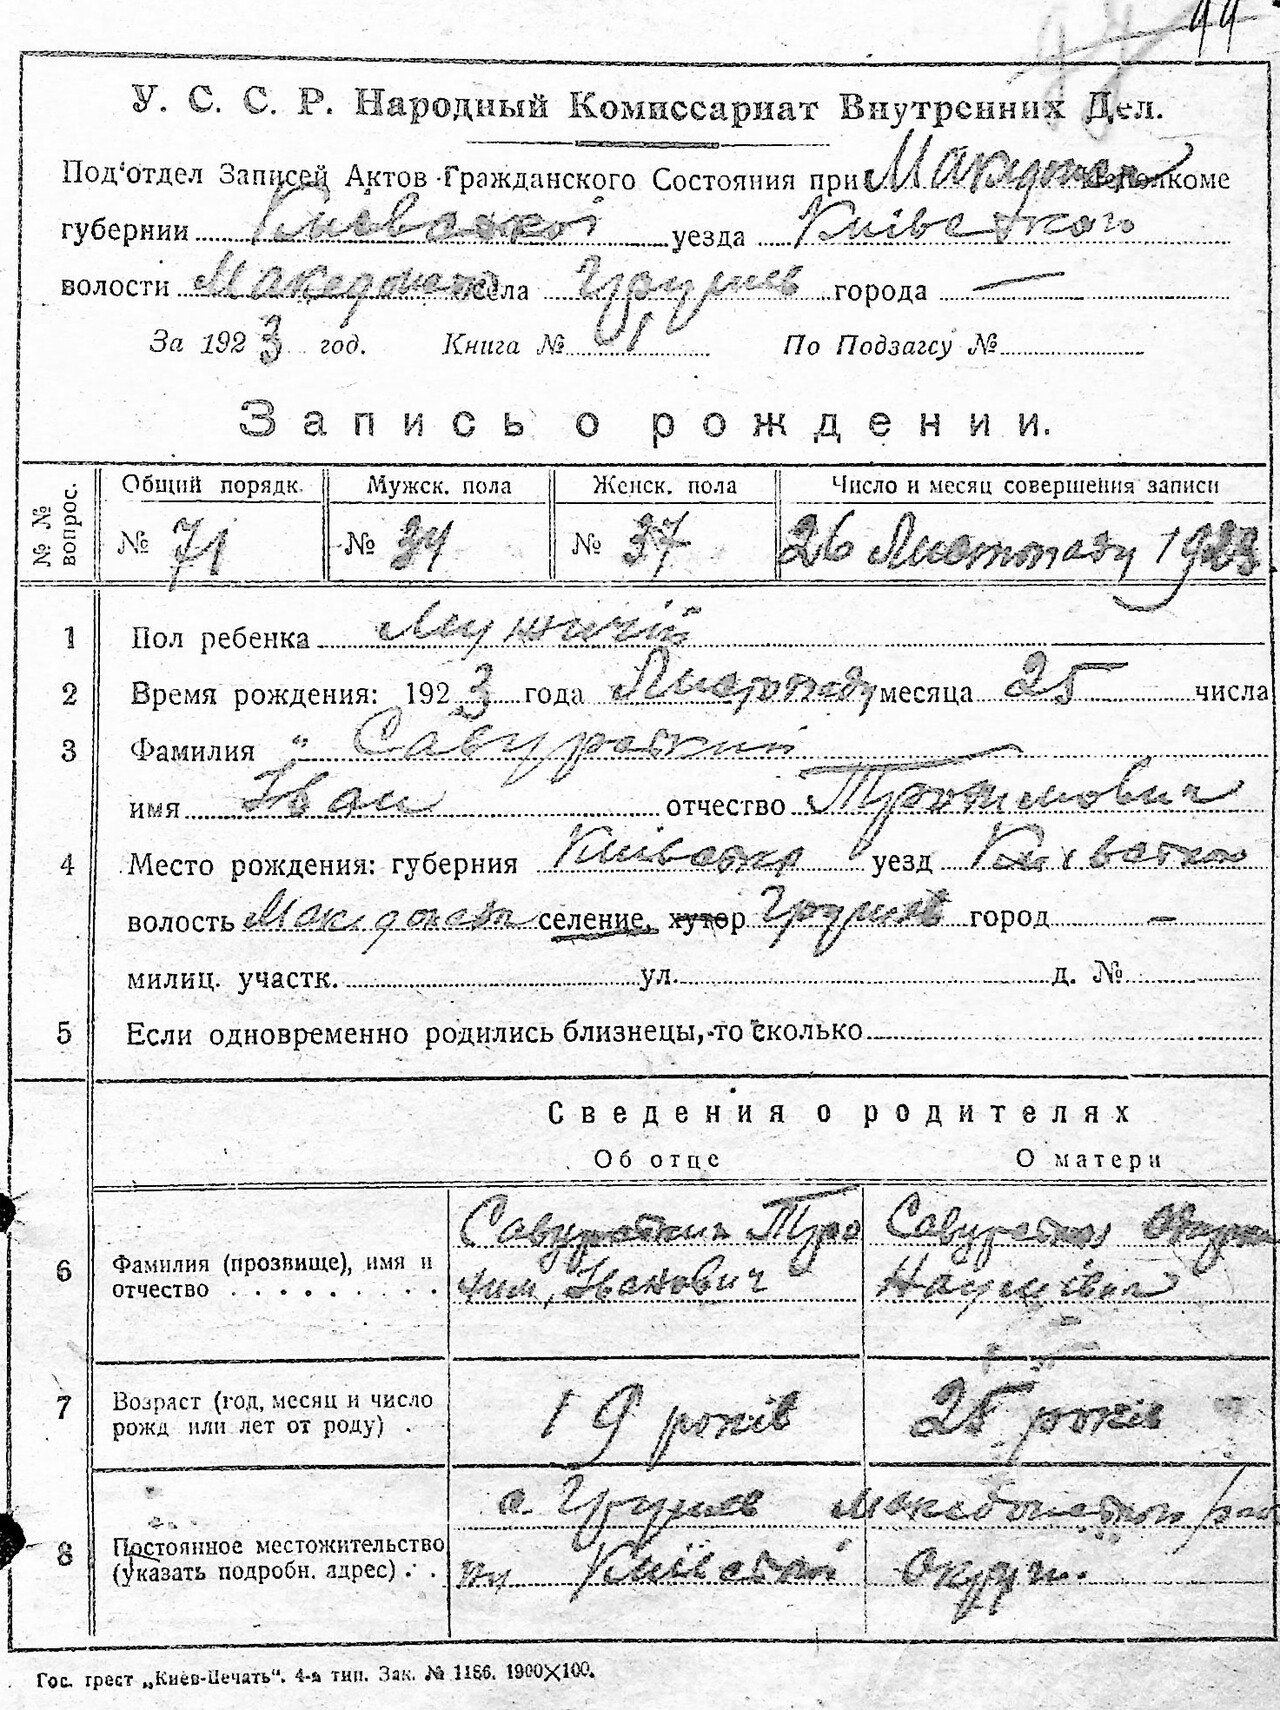 44
У. С. С. Р. Народный Комиссариат Внутренних Дел.
Под'отдел Записей Актов Гражданского Состояния при Македон Исполкоме
губернии Киевской уезда Київського
волости Македонск села Грушев города —
За 1923 год. Книга № 1 По Подзагсу №
Запись о рождении.
№ № вопрос. Общий порядк. Мужск. пола Женск. пола Число и месяц совершения записи
№ 71 № 34 № 37 26 Листопаду 1923
1 Пол ребенка Мужичій
2 Время рождения: 1923 года Листопаду месяца 25 числа
3 Фамилия Савураткий
имя Іван отчество Трохимович
4 Место рождения: губерния Київська уезд Київськ
волость Македонск селение, хутор Грушев город —
милиц. участк. ул. д. №
5 Если одновременно родились близнецы, то сколько
Сведения о родителях
Об отце О матери
6 Фамилия (прозвище), имя и отчество Савураткий Трохим Іванович Наумівна
7 Возраст (год, месяц и число рожд или лет от роду) 19 років 25 років
8 Постоянное местожительство (указать подробн. адрес) с. Грушев Македонской
Київской Округи.
Гос. трест „Киев-Печать“. 4-а тип. Зак. № 1186. 1900×100.